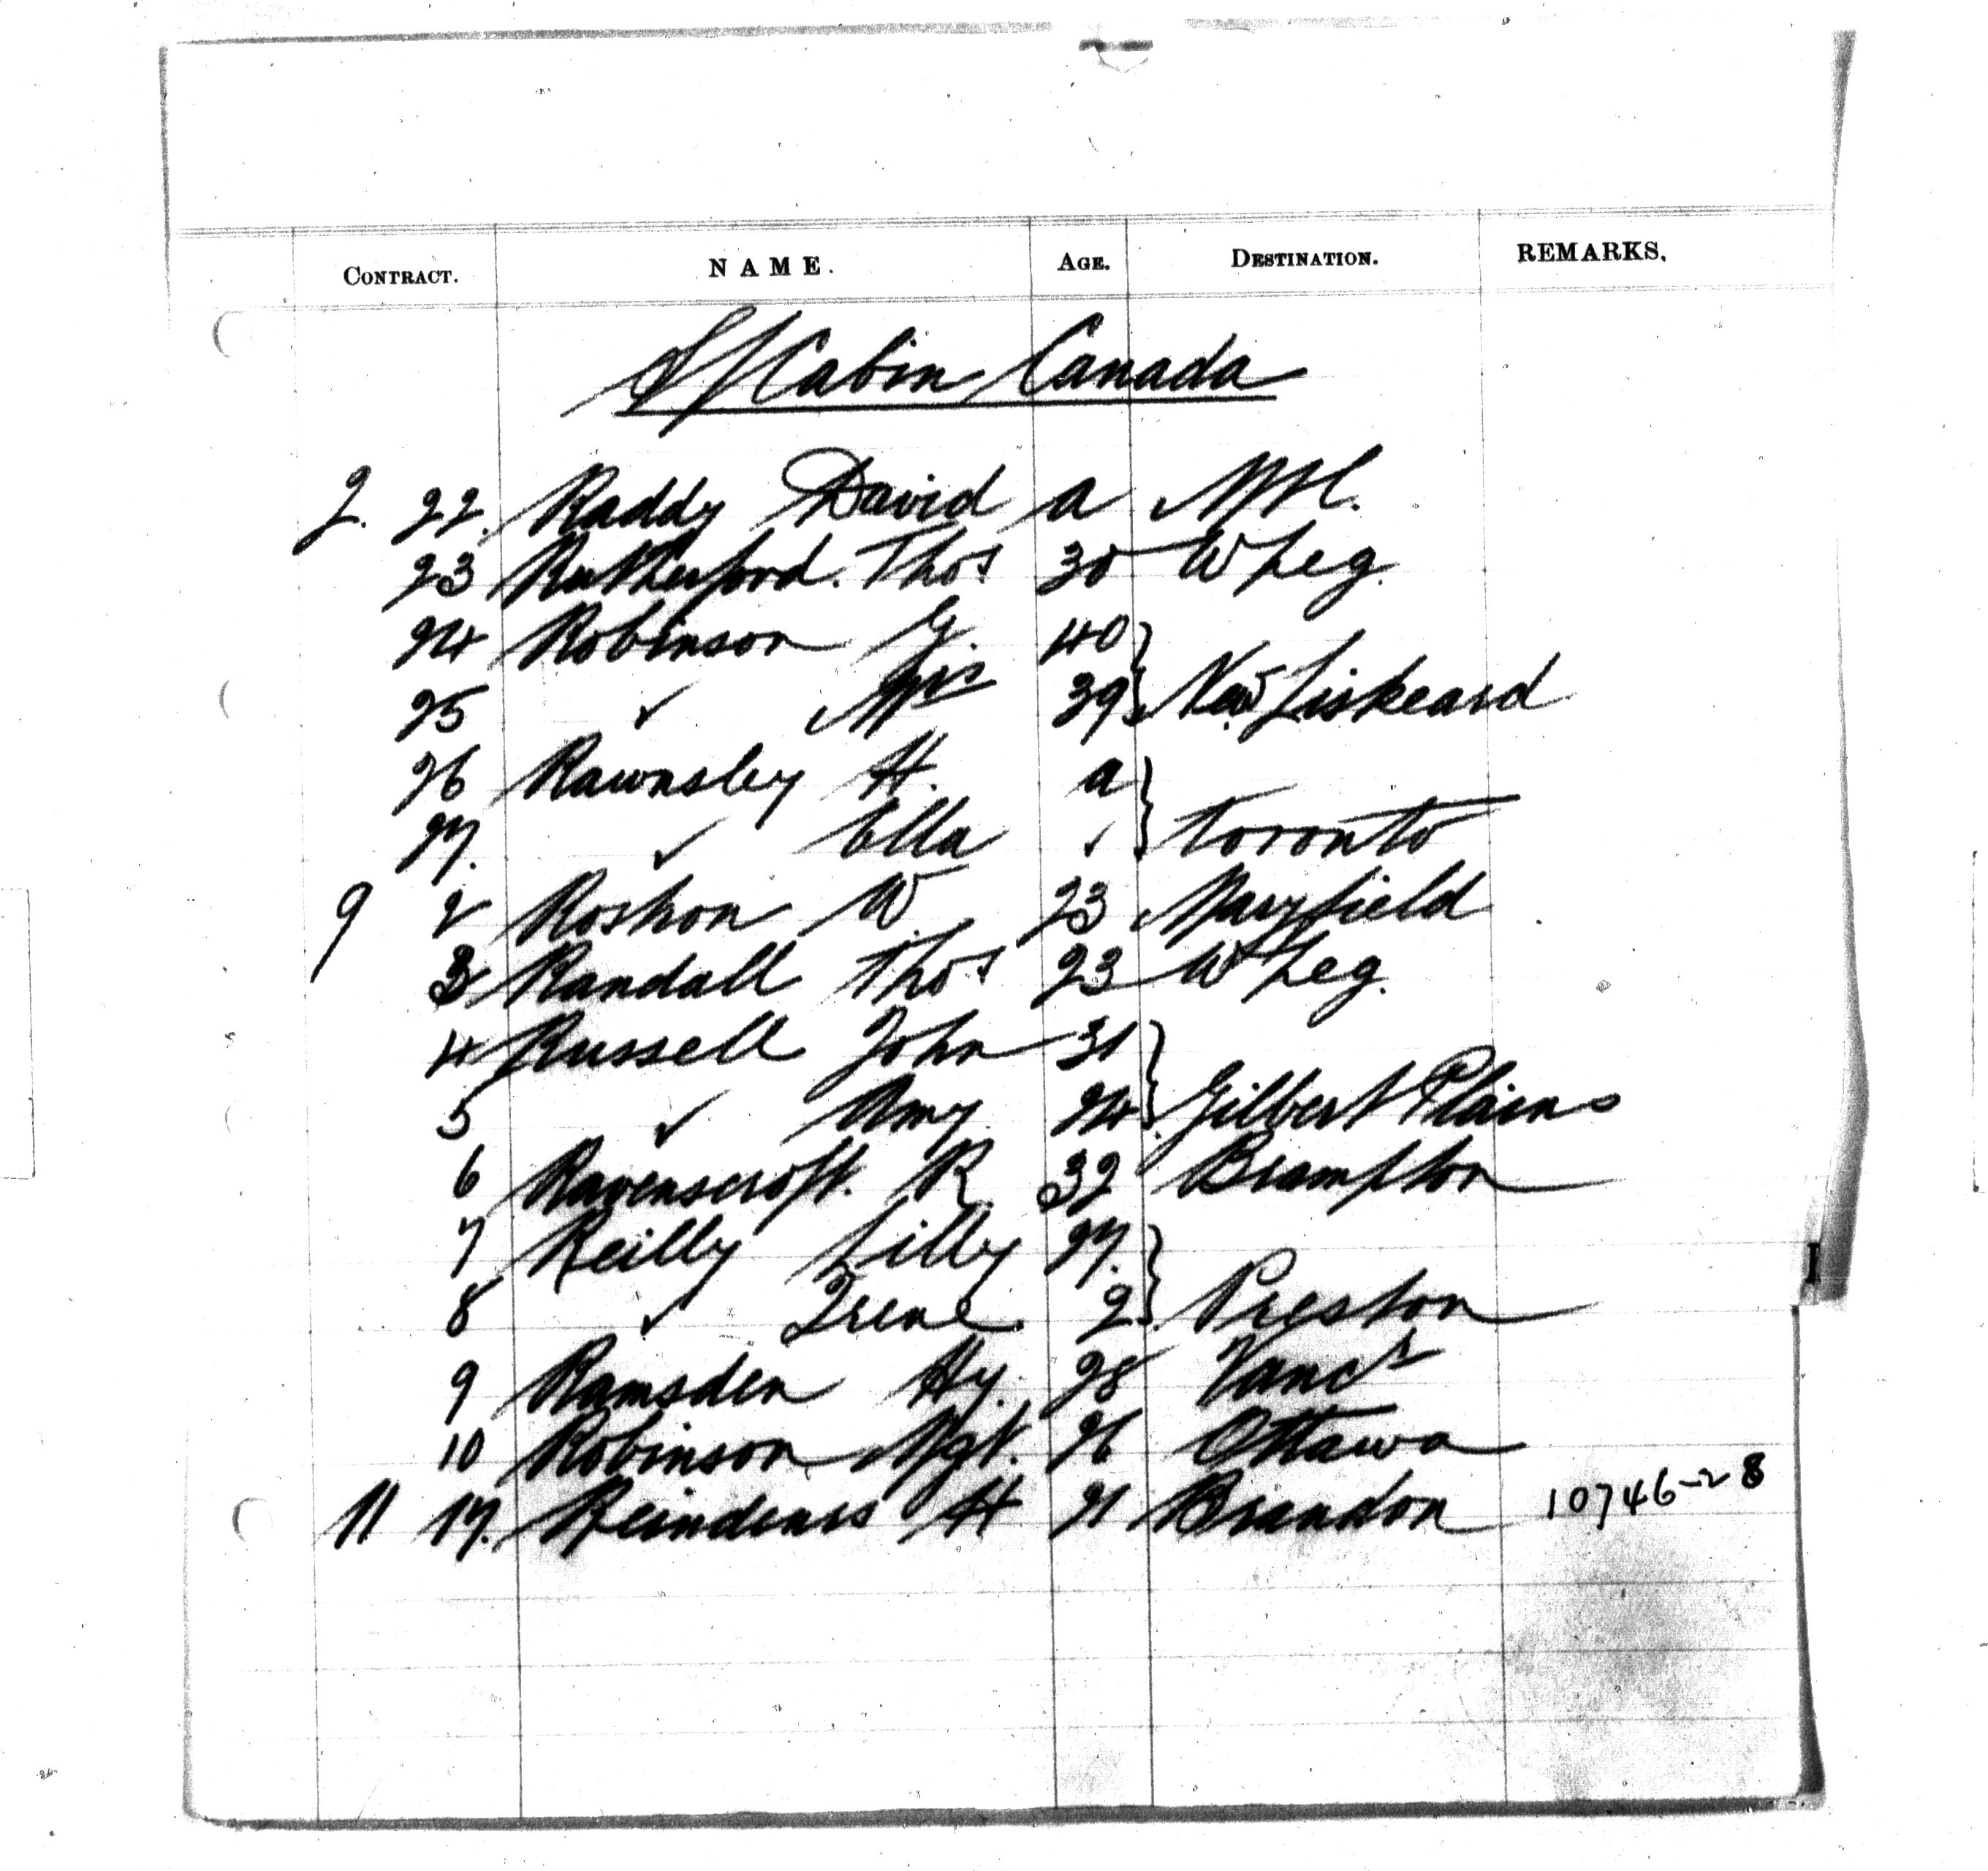 CONTRACT. NAME. AGE. DESTINATION. REMARKS.
S/Cabin Canada
2. 22. Raddy David a Mtl.
23 Rutherford. Thos 30 W Peg.
24 Robinson G. 40
25 ✓ Mrs 39 New Liskeard
26 Rawnsley H. a
27. ✓ Ella ✓ Toronto
9 2 Roshon W. 23 Maryfield
3 Randall Thos 23 W Peg.
4 Russell John 31
5 ✓ Amy 24 Gilbert Plains
6 Ravenscroft. R. 32 Brampton
7 Reilly Lilly 27.
8 ✓ Irene 2 Preston
9 Ramsden Hy. 28 Vancr
10 Robinson Mgt. 26 Ottawa
11 17. Reinders H 21 Brandon 10746-28